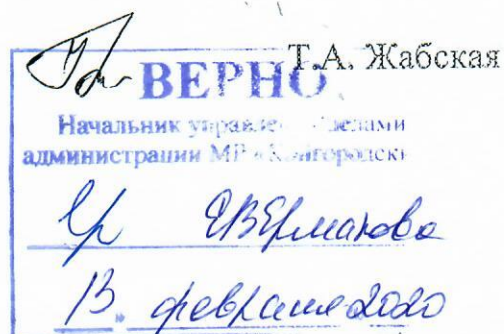 Т.А. Жабская
ВЕРНО
Начальник управле делами
администрации МР «Койгородски
ЕВЕрмакова
13 февраля 2020